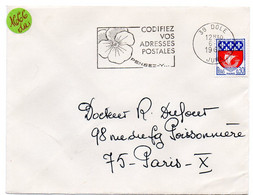 1666
CODIFIEZ
VOS
ADRESSES
POSTALES
PENSEZ-Y...
39 DOLE
Docteur R. Dufour
98 rue du fg Poissonnière
75 - Paris - X